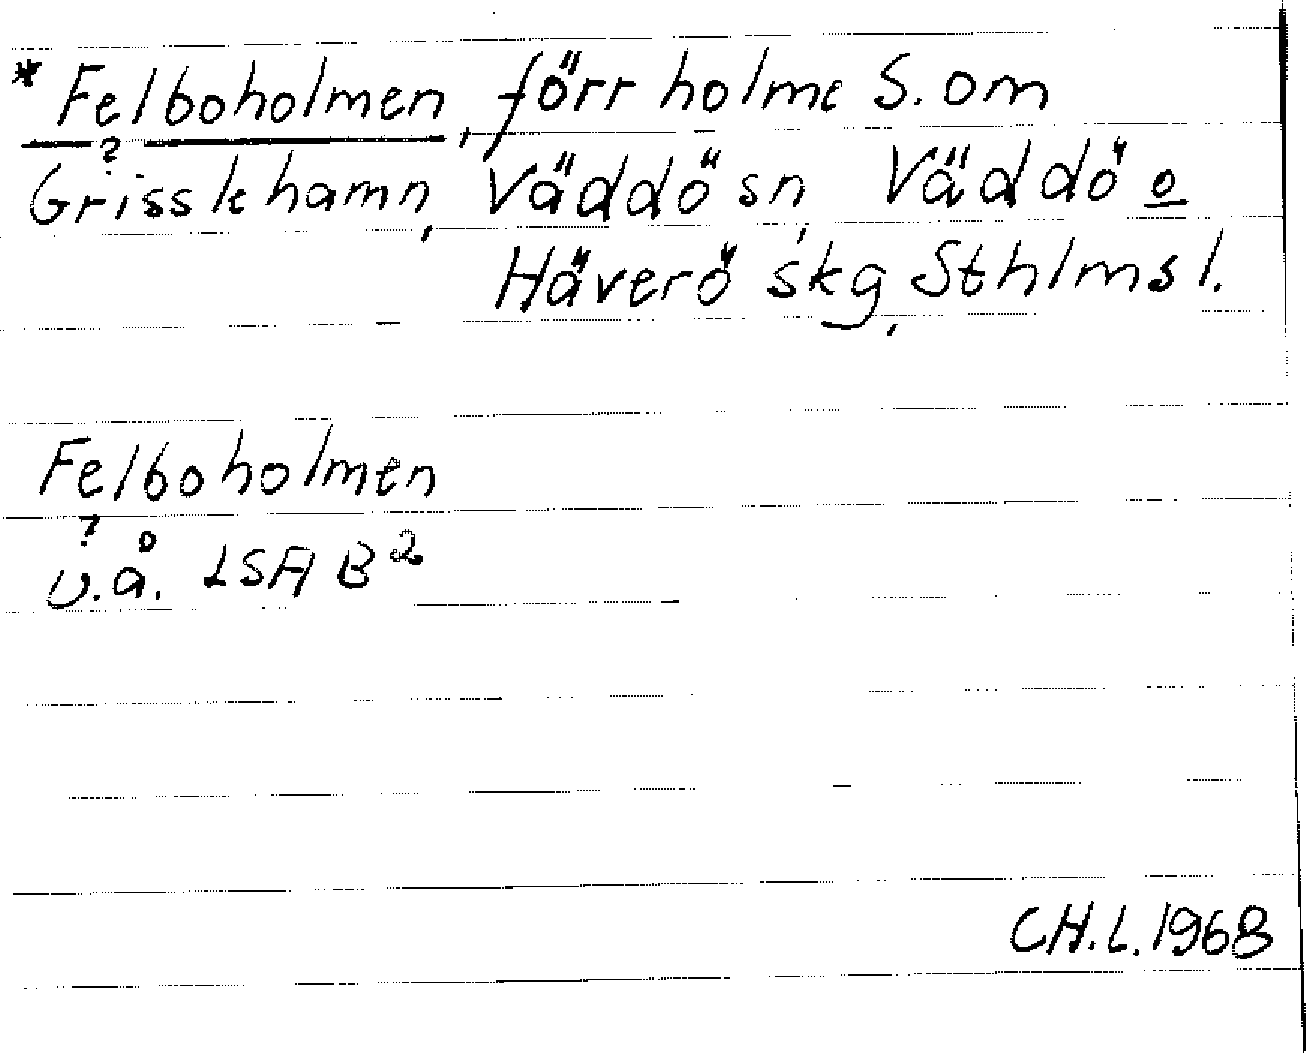 *Felboholmen, förr holme S. om
?
Grisslehamn, Väddö sn, Väddö o
Häverö skg, Sthlms l.
Felboholmen
?
u.å. LSA B²
CH.L. 1968